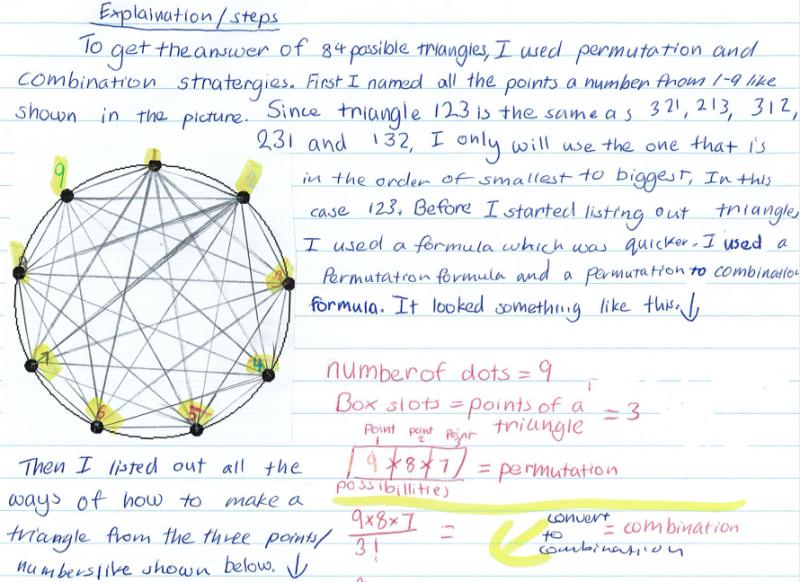 Explaination/steps
To get the answer of 84 possible triangles, I used permutation and
combination stratergies. First I named all the points a number from 1-9 like
shown in the picture. Since triangle 123 is the same as 321, 213, 312,
231 and 132, I only will use the one that is
in the order of smallest to biggest, In this
case 123. Before I started listing out triangles
I used a formula which was quicker. I used a
Permutation formula and a permutation to combination
formula. It looked something like this. ↓
9
1
3
4
7
6
5
number of dots = 9
Box slots = points of a triangle = 3
Point 1 point 2 Point 3
9 × 8 × 7 = permutation
possibillities
9×8×7 / 3! = convert to combination = combination
Then I listed out all the
ways of how to make a
triangle from the three points/
numbers like shown below. ↓